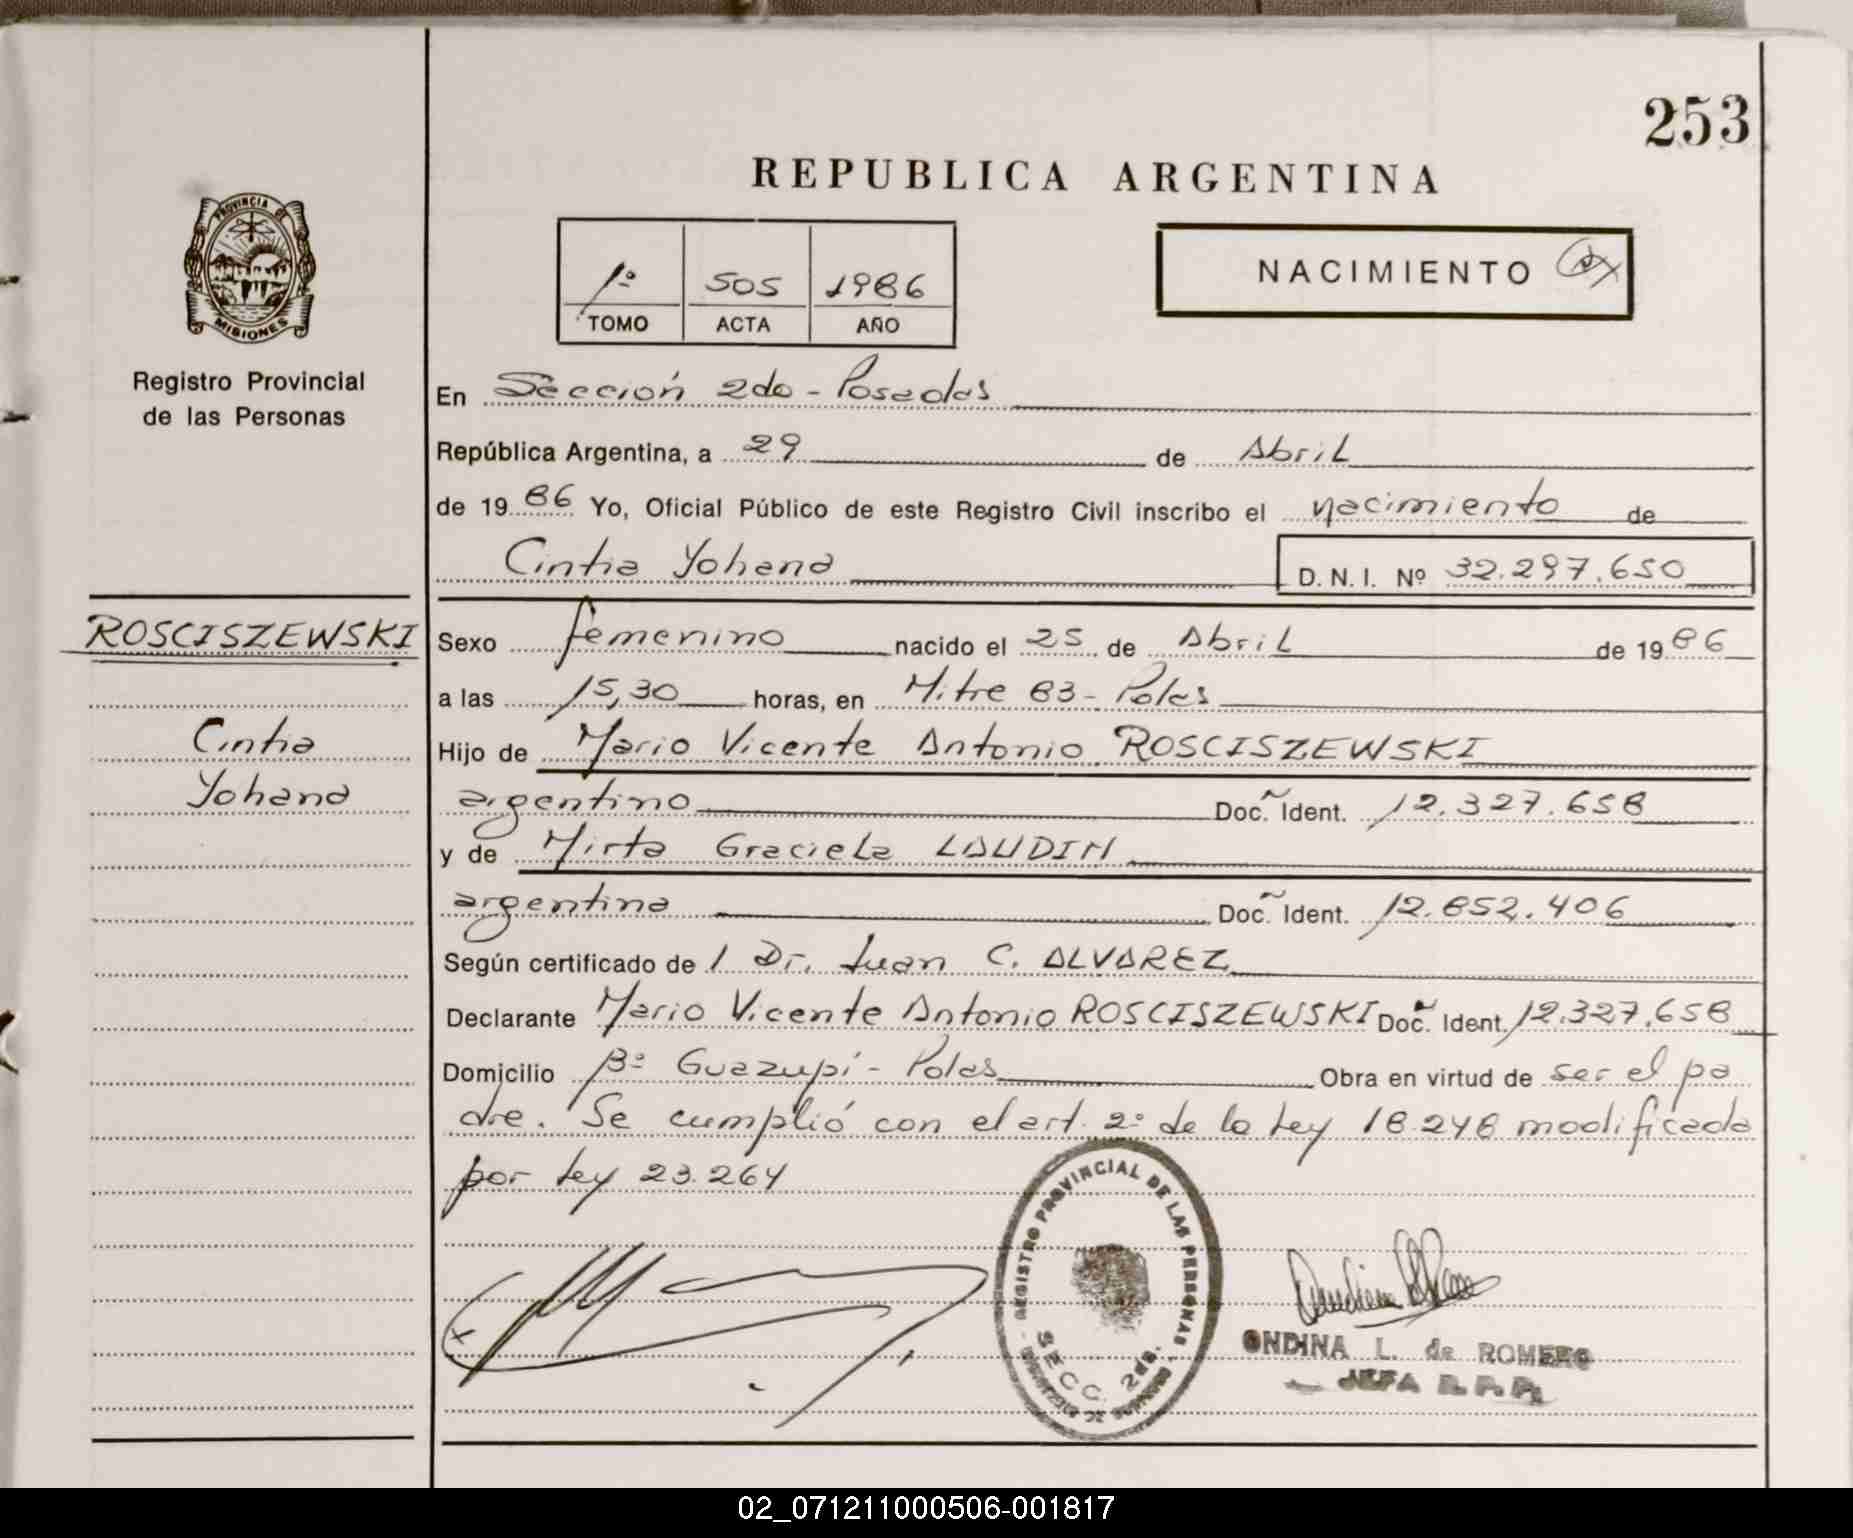 253
REPUBLICA ARGENTINA
PROVINCIA DE
MISIONES
Registro Provincial
de las Personas
1º 505 1986
TOMO ACTA AÑO
NACIMIENTO
En Sección 2da - Posadas
República Argentina, a 29 de Abril
de 1986 Yo, Oficial Público de este Registro Civil inscribo el nacimiento de
Cintia Yohana D. N. I. Nº 32.297.650
ROSCISZEWSKI
Cintia
Yohana
Sexo femenino nacido el 25 de Abril de 1986
a las 15,30 horas, en Mitre 83 - Pdas
Hijo de Mario Vicente Antonio ROSCISZEWSKI
argentino Doc. Ident. 12.327.658
y de Mirta Graciela LAUDIN
argentina Doc. Ident. 12.852.406
Según certificado de 1 Dr. Juan C. ALVAREZ
Declarante Mario Vicente Antonio ROSCISZEWSKI Doc. Ident. 12.327.658
Domicilio Bº Guazupí - Pdas Obra en virtud de ser el pa
dre. Se cumplió con el art. 2º de la ley 18.248 modificada
por ley 23.264
REGISTRO PROVINCIAL DE LAS PERSONAS
SECC. 2da.
ONDINA L. de ROMERO
JEFA R. P. P.
02_071211000506-001817